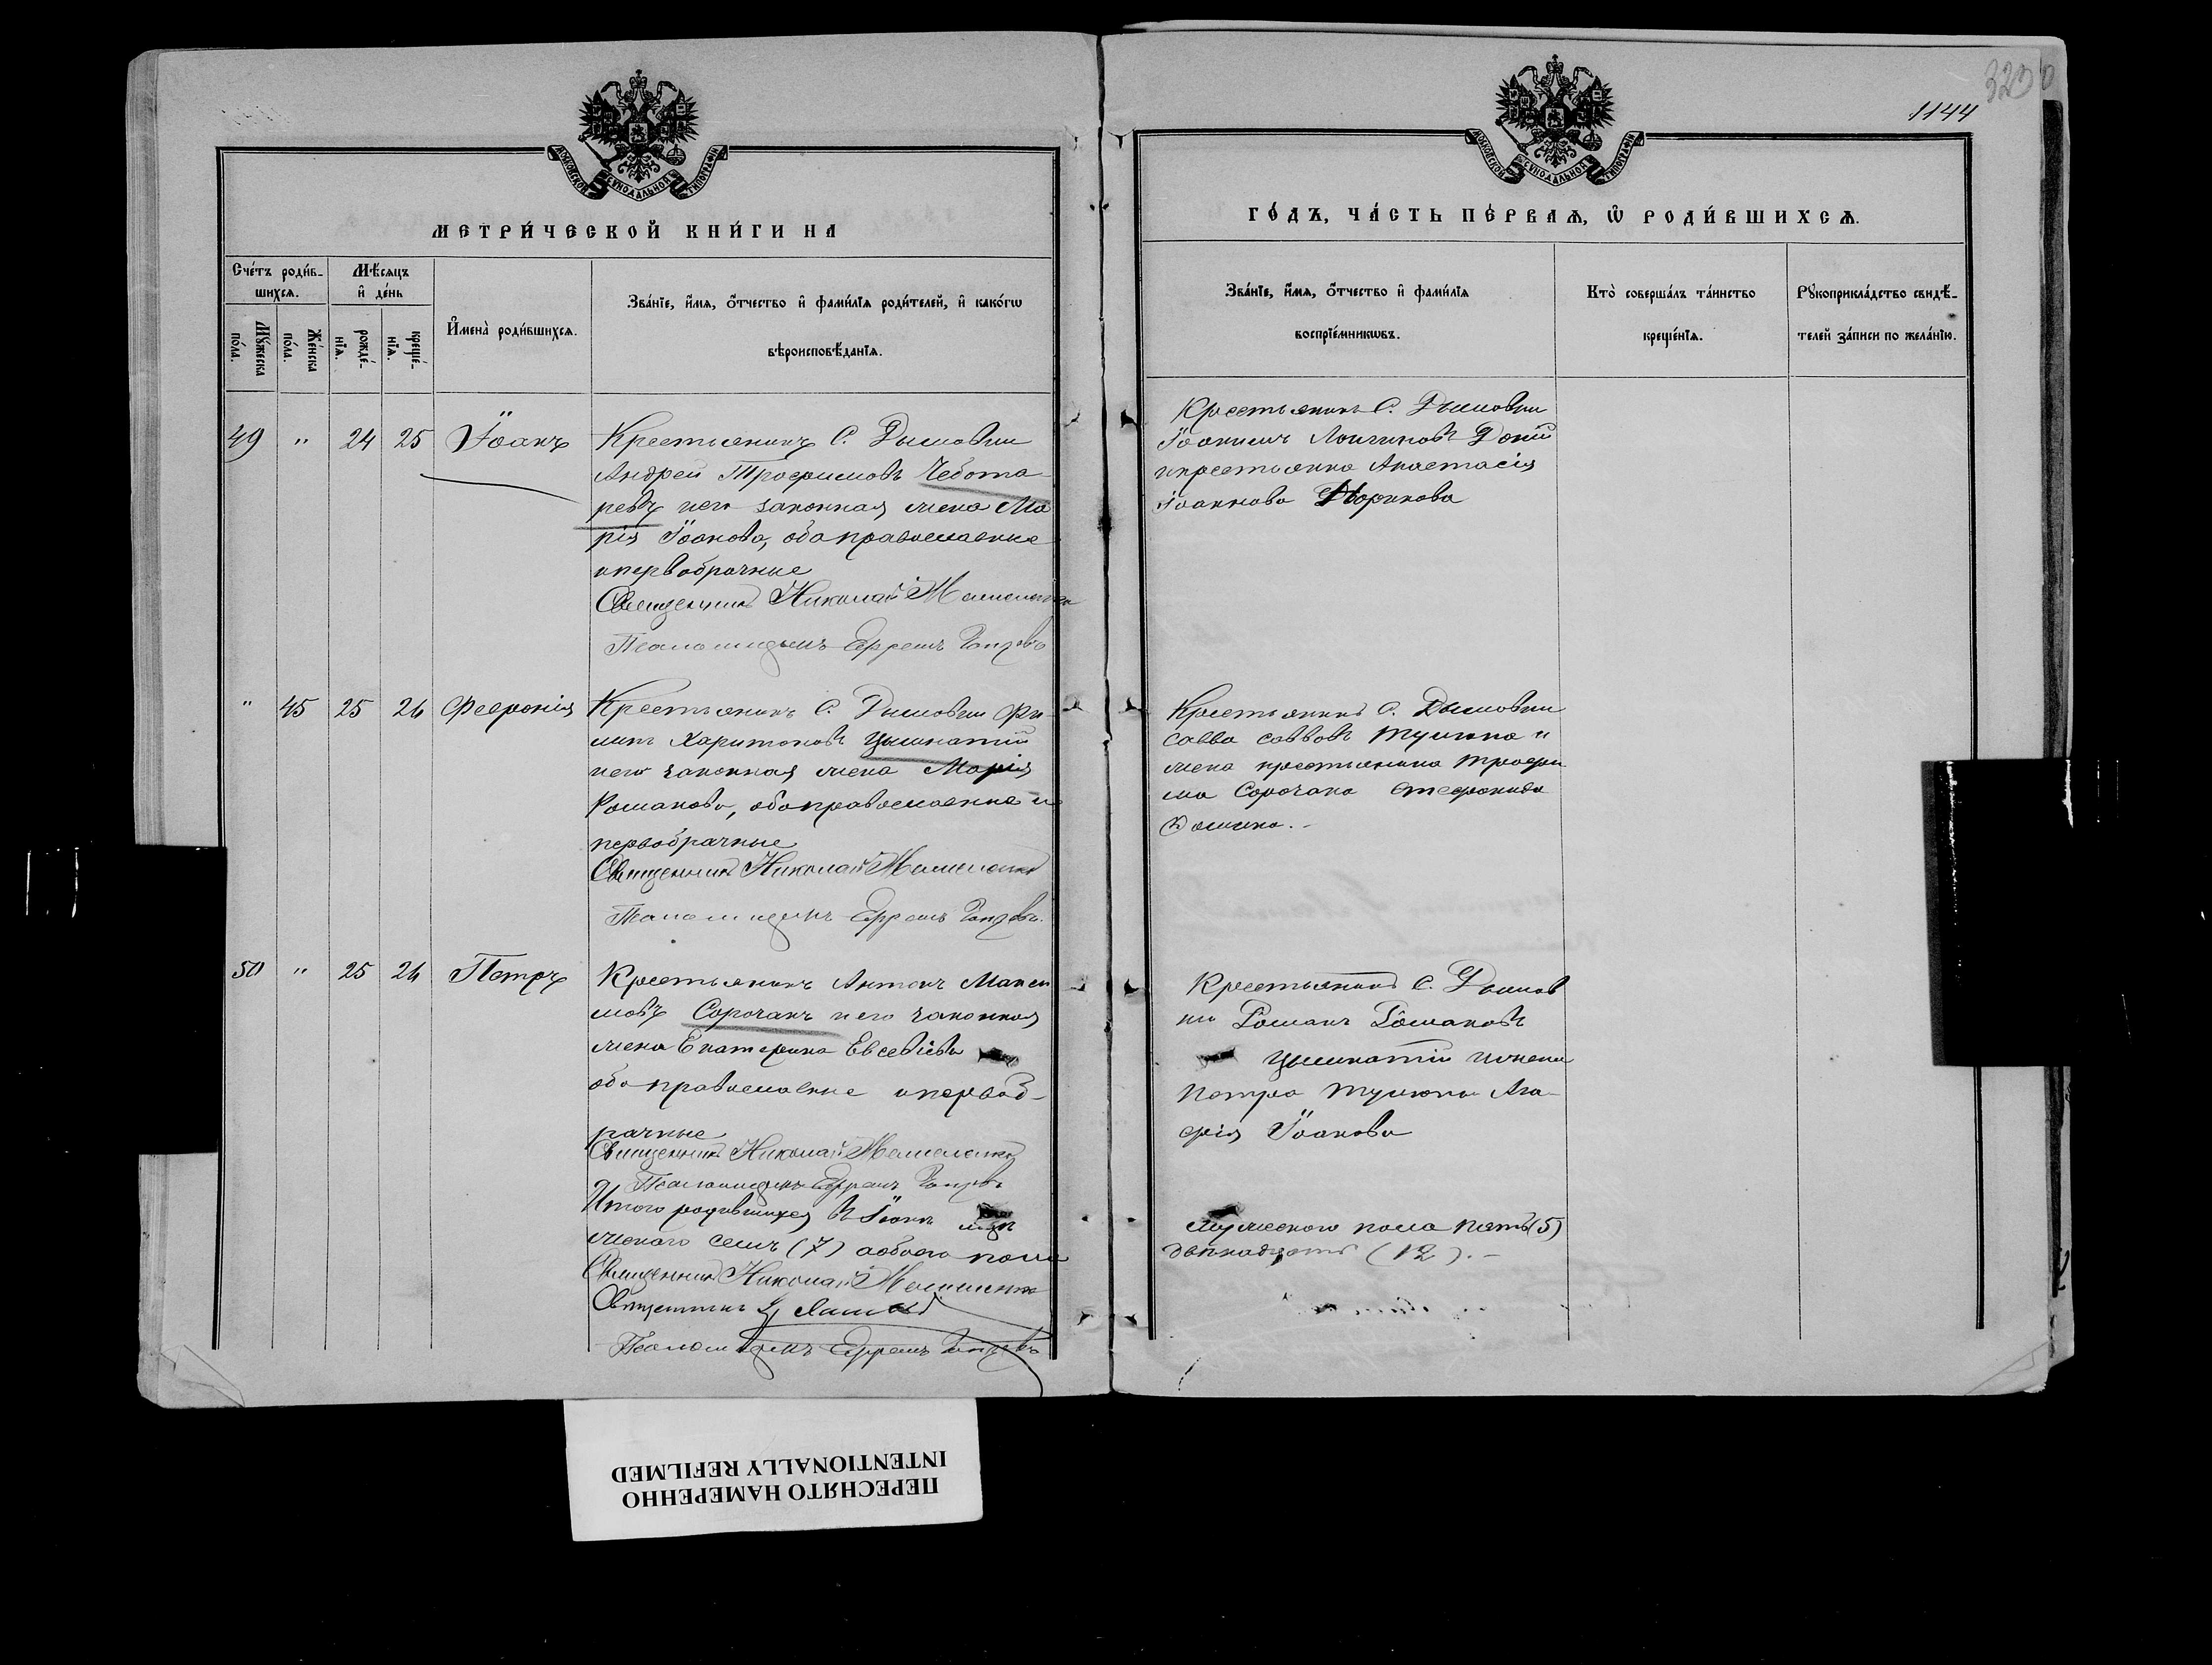 МОСКОВСКОЙ СѴНОДАЛЬНОЙ ТИПОГРАФІИ
МЕТРИ́ЧЕСКОЙ КНИ́ГИ НА
Сче́тъ роди́в-
шихсѧ.
Мѣ́сѧцъ
и҆ де́нь
Мꙋ́жеска
по́ла.
Же́нска
по́ла.
рожде́-
нїѧ.
креще́-
нїѧ.
И҆мена̀ роди́вшихсѧ.
Зва́нїе, и҆́мѧ, ѻ҆́тчество и҆ фами́лїѧ роди́телей, и҆ како́гѡ
вѣроисповѣ́данїѧ.
49 " 24 25 Іоанъ
Крестьянинъ С. Дымовки
Андрей Трофимовъ Чебота-
ревъ и его законная жена Ма
рія Іоанова, оба православные
и первобрачные
Священникъ Николай
Псаломщикъ Ефремъ
" 45 25 26 Февронія
Крестьянинъ С. Дымовки Фи-
липъ Харитоновъ Цымкатій
и его законная жена Марія
Романова, оба православные и
первобрачные
Священникъ Николай
Псаломщикъ Ефремъ
50 " 25 26 Петръ
Крестьянинъ Антонъ Макси
мовъ Сорочанъ и его законная
жена Екатерина Евсевіева
оба православные и первоб-
рачные
Священникъ Николай
Псаломщикъ Ефремъ
Итого родившихся въ Іюнѣ
женскаго семь (7) а обоего пола
Священникъ Николай
Священникъ
Псаломщикъ Ефремъ
323
1144
МОСКОВСКОЙ СѴНОДАЛЬНОЙ ТИПОГРАФІИ
ГО́ДЪ, ЧА́СТЬ ПЕ́РВАѦ, Ѡ҆ РОДИ́ВШИХСѦ.
Зва́нїе, и҆́мѧ, ѻ҆́тчество и҆ фами́лїѧ
воспрїе́мникѡвъ.
Кто̀ соверша́лъ та́инство
креще́нїѧ.
Рꙋкоприкла́дство свидѣ́-
телей за́писи по жела́нїю.
Крестьянинъ С. Дымовки
Іоакимъ Логиновъ Доній
и крестьянка Анастасія
Іоаннова Дворникова
Крестьянинъ С. Дымовки
Савва Саввовъ и
жена крестьянина Трофи
ма Сорочана Стефанида
Крестьянинъ С. Дымов
ки Романъ Романовъ
Цымкатій и жена
Петра Ага-
фія Іоанова
мужескаго пола пять (5)
двѣнадцать (12). -
ПЕРЕСНЯТО НАМЕРЕННО
INTENTIONALLY REFILMED